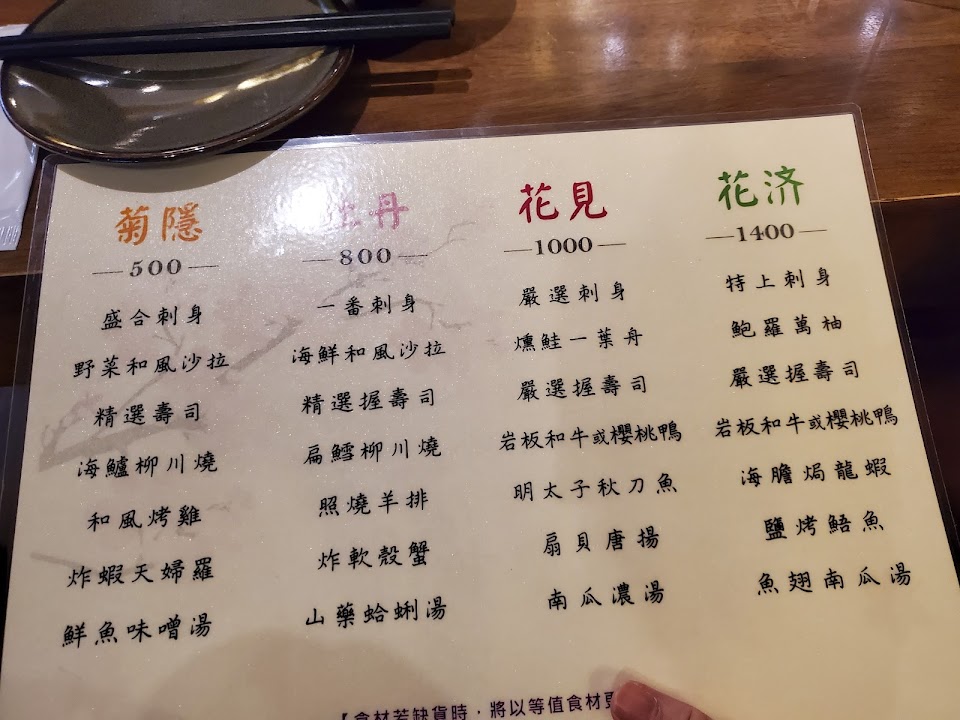 菊隱
500
盛合刺身
野菜和風沙拉
精選壽司
海鱸柳川燒
和風烤雞
炸蝦天婦羅
鮮魚味噌湯
牡丹
800
一番刺身
海鮮和風沙拉
精選握壽司
扁鱈柳川燒
照燒羊排
炸軟殼蟹
山藥蛤蜊湯
花見
1000
嚴選刺身
燻鮭一葉舟
嚴選握壽司
岩板和牛或櫻桃鴨
明太子秋刀魚
扇貝唐揚
南瓜濃湯
花済
1400
特上刺身
鮑羅萬柚
嚴選握壽司
岩板和牛或櫻桃鴨
海膽焗龍蝦
鹽烤鯃魚
魚翅南瓜湯
【食材若缺貨時，將以等值食材更